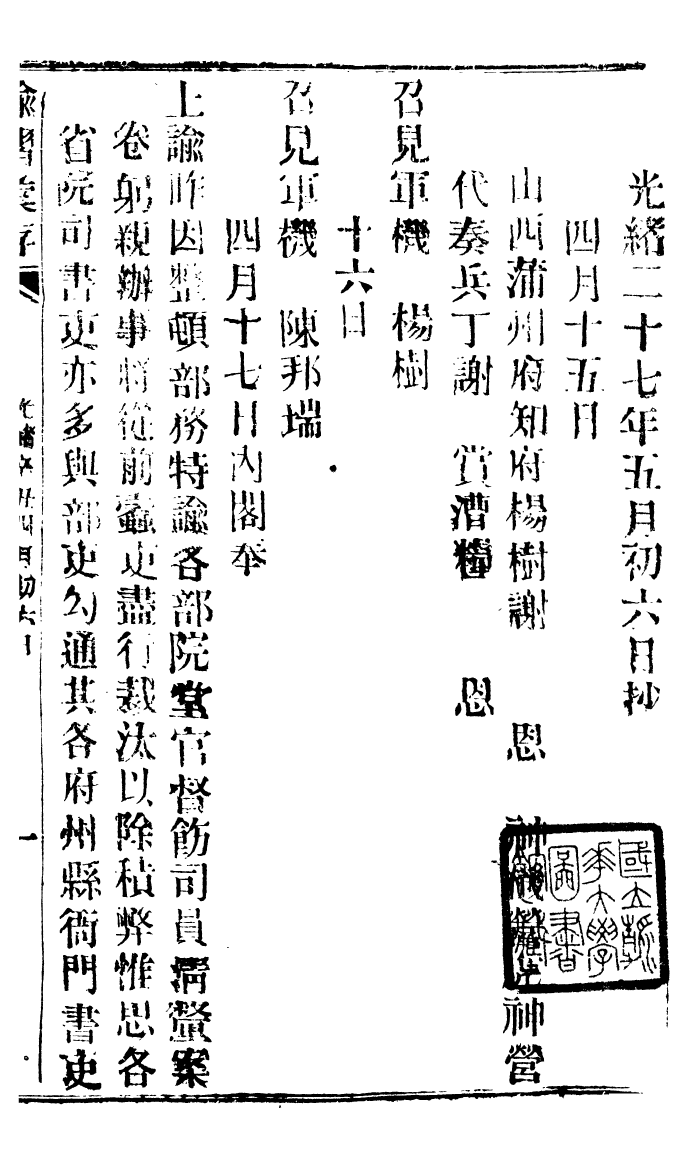 光緒二十七年五月初六日抄
四月十五日
山西蒲州府知府楊樹謝 恩 神機營 神營
代奏兵丁謝 賞漕糧 恩
召見軍機 楊樹
十六日
召見軍機 陳邦瑞
四月十七日內閣奉
上諭昨因整頓部務特諭各部院堂官督飭司員清釐案
卷躬親辦事將從前蠹吏盡行裁汰以除積弊惟思各
省院司書吏亦多與部吏勾通其各府州縣衙門書吏
諭摺彙存
光緒辛丑四月初六日
一
國立清華大學圖書